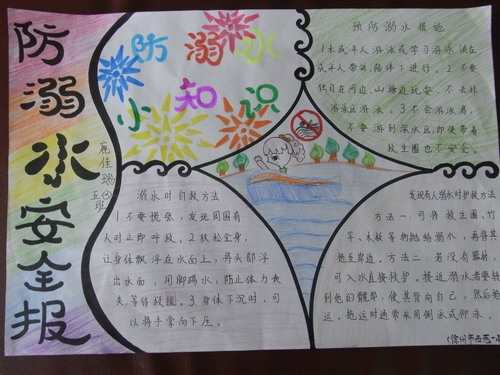 防溺水安全报
防溺水
小知识
五班
预防溺水措施
1.未成年人游泳或学习游泳须在
成年人带领陪伴下进行。2.不要
独自在河边、山塘边玩耍,不去非
游泳区游泳。3.不会游泳者,
不要游到深水区,即使带着
救生圈也不安全。
溺水时自救方法
1.不要慌张,发现周围有
人时立即呼救。2.放松全身,
让身体飘浮在水面上,将头部浮
出水面,用脚踢水,防止体力丧
失,等待救援。3.身体下沉时,可
以将手掌向下压。
发现有人溺水时救护方法
方法一:可将救生圈、竹
竿、木板等物抛给溺水,再将其
拖至岸边。方法二:若没有器材,
可入水直接救护。接近溺水者要转
到他的髋部,使其背向自己,然后拖
运。拖运时通常采用侧泳或仰泳。